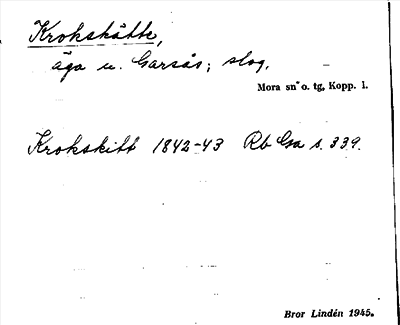 Krokskåtte,
äga u. Garsås; slog.
Mora sn o. tg, Kopp. l.
Krokskitt 1842-43 Rb Ga s. 339.
Bror Lindén 1945.